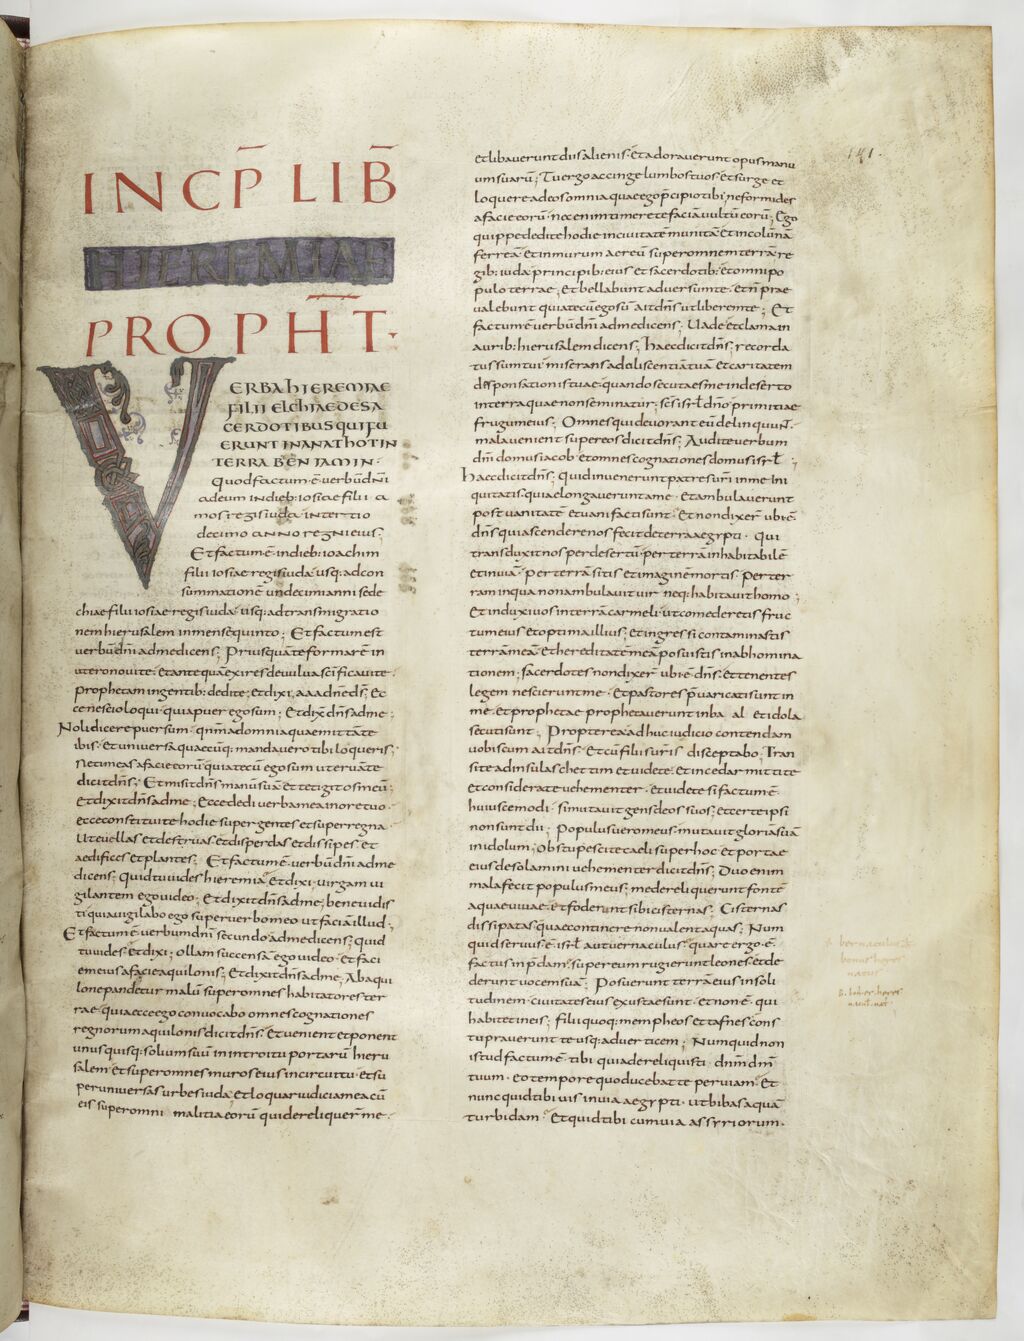 INCP̄ LIB̄
HIEREMIAE
PROPH̄T·
VERBA HIEREMIAE
FILII ELCHIAE DE SA
CERDOTIBUS QUI FU
ERUNT IN ANATHOT IN
TERRA BENIAMIN·
Quod factum ē uerbū dn̄i
ad eum in dieb; iosiae filii a
mos regis iuda in tertio
decimo anno regni eius;
Et factum ē in dieb; ioachim
filii iosiae regis iuda usq; ad con
summationē undecimi anni sede
chiae filii iosiae regis iuda usq; ad transmigratio
nem hierusalem in mense quinto; Et factum est
uerbū dn̄i ad me dicens; Priusquā te formarē in
utero noui te· et antequā exires de uulua sc̄ificaui te·
prophetam in gentib; dedi te; Et dixi, aaa dn̄e ds̄; Ec
ce nescio loqui quia puer ego sum; Et dix̄ dn̄s ad me;
Noli dicere puer sum· qn̄m ad omnia quae mittā te
ibis· Et uniuersa quaecūq; mandauero tibi loqueris;
Ne timeas a facie eorū quia tecū ego sum ut eruā te
dicit dn̄s; Et misit dn̄s manū suā et tetigit os meū;
Et dixit dn̄s ad me; Ecce dedi uerba mea in ore tuo·
ecce constitui te hodie super gentes et super regna·
Ut euellas et destruas et disperdas et dissipes et
aedifices et plantes; Et factum ē uerbū dn̄i ad me
dicens; Quid tu uides hieremia· Et dixi· uirgam ui
gilantem ego uideo; Et dixit dn̄s ad me; bene uidis
ti quia uigilabo ego super uerbo meo ut faciā illud·
Et factum ē uerbum dn̄i secundo ad me dicens; quid
tu uides· Et dixi; ollam succensā ego uideo et faci
em eius a facie aquilonis; Et dixit dn̄s ad me; Ab aqui
lone pandetur malū super omnes habitatores ter
rae· quia ecce ego conuocabo omnes cognationes
regnorum aquilonis dicit dn̄s; Et uenient et ponent
unusquisq; solium suū in introitu portarū hieru
salem et super omnes muros eius in circuitu· et su
per uniuersas urbes iuda· Et loquar iudicia mea cū
eis super omni malitia eorū qui dereliquer̄ me·
141·
et libauerunt diis alienis· et adorauerunt opus manu
um suarū; Tu ergo accinge lumbos tuos· et surge et
loquere ad eos omnia quae ego p̄cipio tibi; ne formides
a facie eorū· nec enim timere te faciā uultū eorū; Ego
quippe dedi te hodie in ciuitatē munitā· et in colūnā
ferreā· Et in murum aereū super omnem terrā re
gib; iuda principib; eius et sacerdotib; et omni po
pulo terrae, Et bellabunt aduersum te· et n̄ prae
ualebunt quia tecū ego sū ait dn̄s ut liberem te; Et
factum ē uerbū dn̄i ad me dicens; Uade et clama in
aurib; hierusalem dicens; Haec dicit dn̄s; recorda
tus sum tui miserans adoliscentiā tuā et caritatem
desponsationis tuae· quando secuta es me in deserto
in terra quae non seminatur; sc̄s isrł dn̄o primitiae
frugum eius; Omnes qui deuorant eū delinquuNT·
mala uenient super eos dicit dn̄s; Audite uerbum
dn̄i domus iacob et omnes cognationes domus isrł;
Haec dicit dn̄s; Quid inuenerunt patres uri in me ini
quitatis· quia elongauerunt a me· Et ambulauerunt
post uanitatē et uani facti sunt· Et non dixer̄ ubi ē
dn̄s qui ascendere nos fecit de terra aegypti· qui
transduxit nos per desertū· per terrā inhabitabilē
et inuiā· Per terrā sitis et imaginē mortis· Per ter
ram in qua non ambulauit uir neq; habitauit homo;
Et induxi uos in terrā carmeli· ut comederetis fruc
tum eius et optima illius; Et ingressi contaminastis
terrā meā· Et hereditatē meā posuistis in abhomina
tionem; sacerdotes non dixer̄· ubi ē dn̄s· Et tenentes
legem nescierunt me· Et pastores p̄uaricati sunt in
me et prophetae prophetauerunt in baal et idola
secuti sunt; Propterea adhuc iudicio contendam
uobiscum ait dn̄s· Et cū filiis uris disceptabo; Tran
site ad insulas chettim et uidete· Et in cedar mittite
et considerate uehementer· Et uidete si factum ē
huiuscemodi· si mutauit gens deos suos; Et certe ipsi
non sunt dii· Populus uero meus mutauit gloriā suā
in idolum; Obstupescite caeli super hoc et portae
eius desolamini uehementer dicit dn̄s; Duo enim
mala fecit populus meus; me dereliquerunt fontē
aquae uiuae; Et foderunt sibi cisternas; Cisternas
dissipatas quae continere non ualent aquas; Num
quid seruus ē isrł aut uernaculus· quare ergo ē
factus in p̄dam; super eum rugierunt leones· et de
derunt uocem suā; Posuerunt terrā eius in soli
tudinem· ciuitates eius exustae sunt· et non ē qui
habitet in eis; filii quoq; mempheos et tafnes cons
tuprauerunt te usq; ad uerticem; Numquid non
istud factum ē tibi quia dereliquisti dn̄m dm̄
tuum· eo tempore quo ducebat te per uiam· Et
nunc quid tibi uis in uia aegypti· ut bibas aquā
turbidam· Et quid tibi cum uia assyriorum·